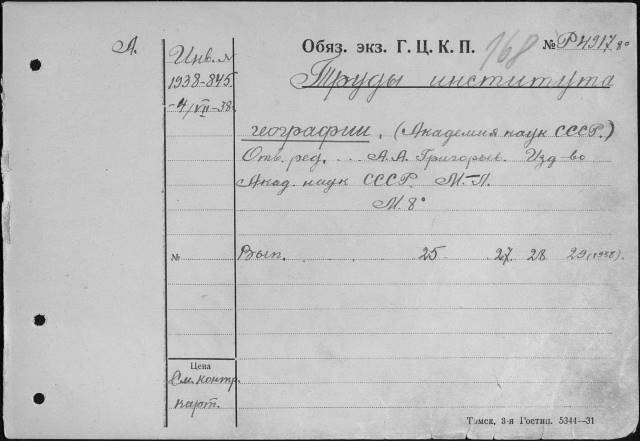 А.
Инв. №
1938-845
4/VII-38.
Обяз. экз. Г. Ц. К. П. 168 № Р4917 8°
Труды института
географии. (Академия наук СССР.)
Отв. ред. ... А.А. Григорьев. Изд-во
Акад. наук СССР. М.-Л.
М. 8°
№ Вып. 25 27. 28 29 (1938)
Цена
См. контр.
карт.
Томск, 3-я Гостип. 5344—31